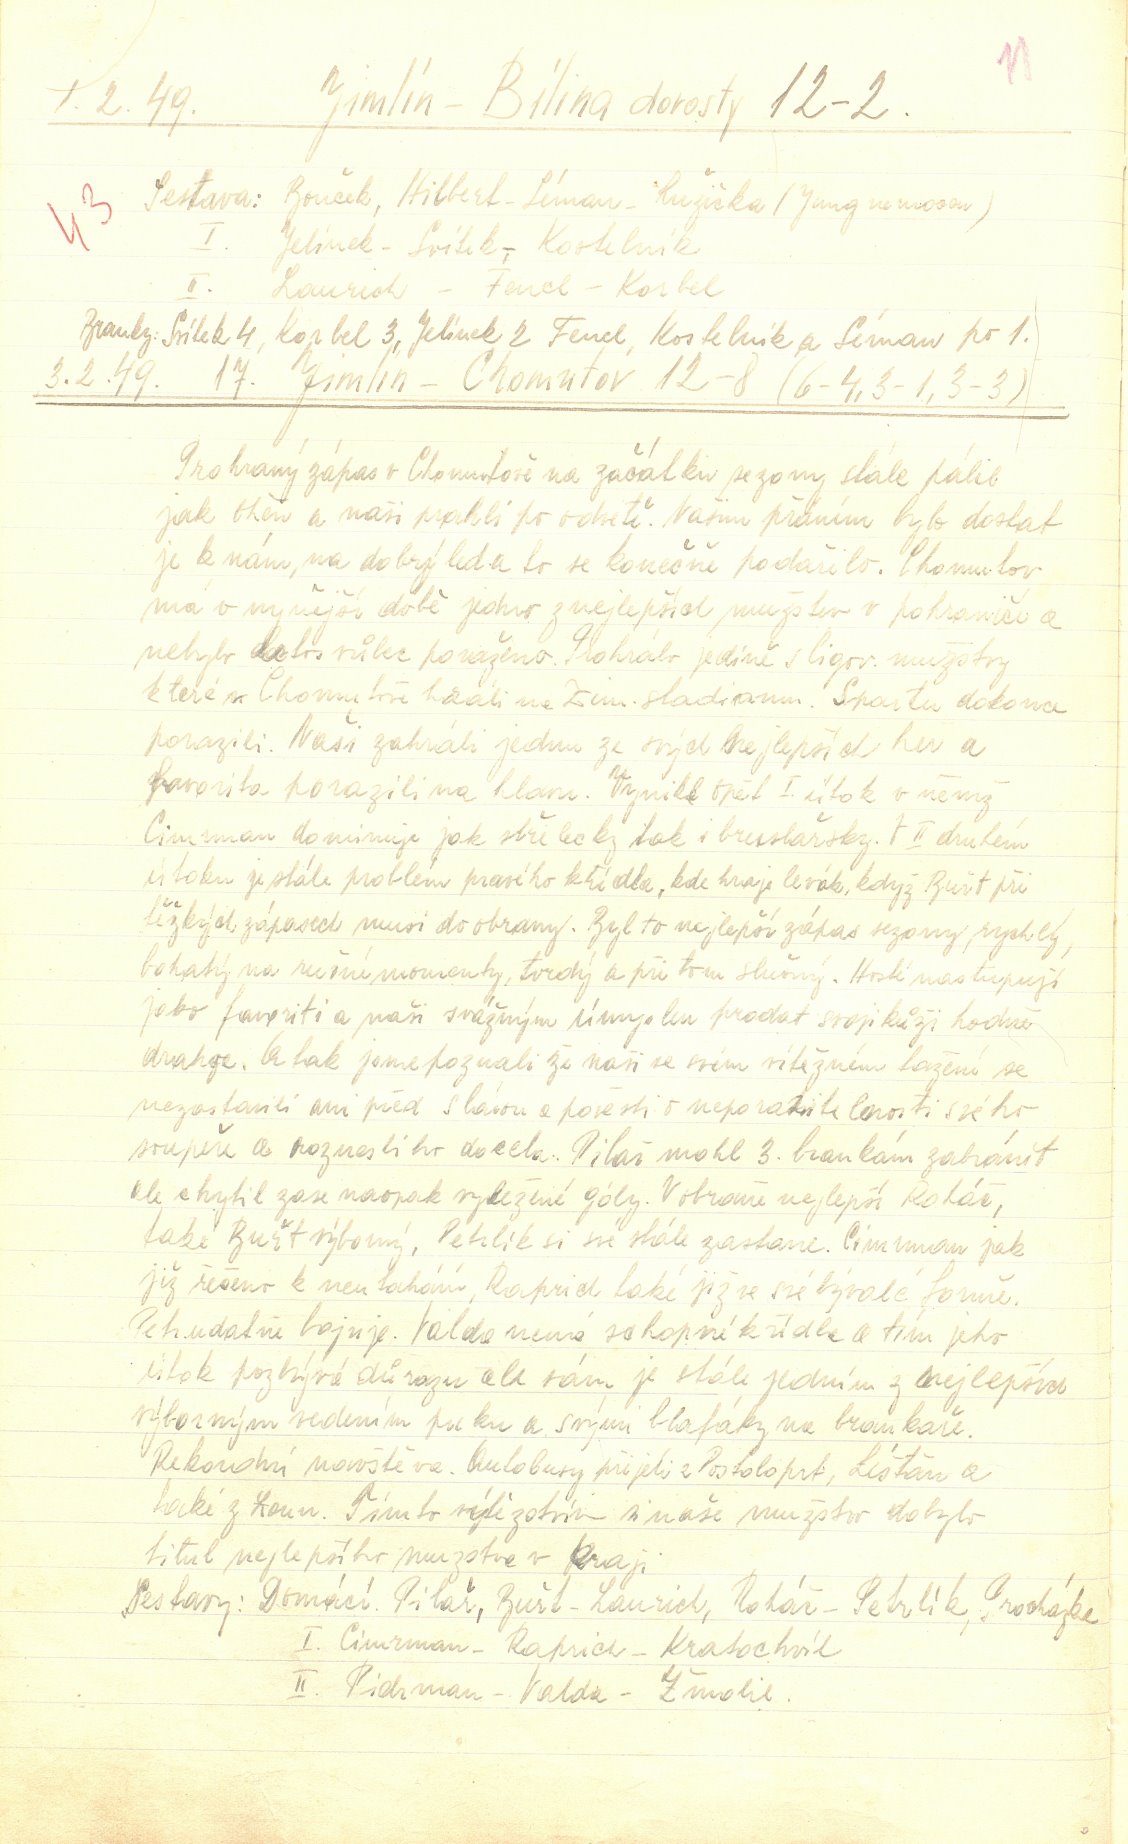 11
1. 2. 49. Jimlín - Bílina dorosty 12-2.
43
Sestava: Bouček, Hilbert - Léman - Růžička (Jung nemocen)
I. Jelínek - Svítek - Kostelník
II. Laurich - Fencl - Korbel
Branky: Svítek 4, Korbel 3, Jelínek 2 Fencl, Kostelník a Léman po 1.
3. 2. 49. 17. Jimlín - Chomutov 12-8 (6-4, 3-1, 3-3)
Prohraný zápas v Chomutově na začátku sezony stále pálil
jak oheň a naši prahli po odvetě. Naším přáním bylo dostat
je k nám, na dobrý led a to se konečně podařilo. Chomutov
má v nynější době jedno z nejlepších mužstev v pohraničí a
nebylo letos vůbec poraženo. Prohrálo jedině s ligov. mužstvy
které v Chomutově hráli na Zim. stadionu. Spartu dokonce
porazili. Naši zahráli jednu ze svých nejlepších her a
favorita porazili na hlavu. Vynikl opět I. útok v němž
Cimrman dominuje jak střelecky tak i bruslařsky. V II druhém
útoku je stále problém pravého křídla, kde hraje levák, když Buřt při
těžkých zápasech musí do obrany. Byl to nejlepší zápas sezony, rychlý,
bohatý na rušné momenty, tvrdý a při tom slušný. Hosté nastupují
jako favoriti a naši s vážným úmyslem prodat svoji kůži hodně
draho. A tak jsme poznali že naši se svém vítězném tažení se
nezastavili ani před slávou a pověstí o neporazitelnosti svého
soupeře a roznesli ho docela. Pilař mohl 3. brankám zabránit
ale chytil zase naopak vyležené góly. V obraně nejlepší Rohář,
také Buřt výborný, Petrlík si své stále zastane. Cimrman jak
již řečeno k neutahání, Raprich také již ve své bývalé formě.
Petr udatně bojuje. Valda nemá schopné křídla a tím jeho
útok pozbývá důrazu ale sám je stále jedním z nejlepších
výborným vedením puku a svými blafáky na brankaře.
Rekordní návštěva. Autobusy přijeli z Postoloprt, Líšťan a
také z Loun. Tímto vítězstvím si naše mužstvo dobylo
titul nejlepšího mužstva v kraji
Sestavy: Domácí. Pilař, Buřt - Laurich, Rohář - Petrlík, Procházka
I. Cimrman - Raprich - Kratochvíl
II. Pidrman - Valda - Žmolil.